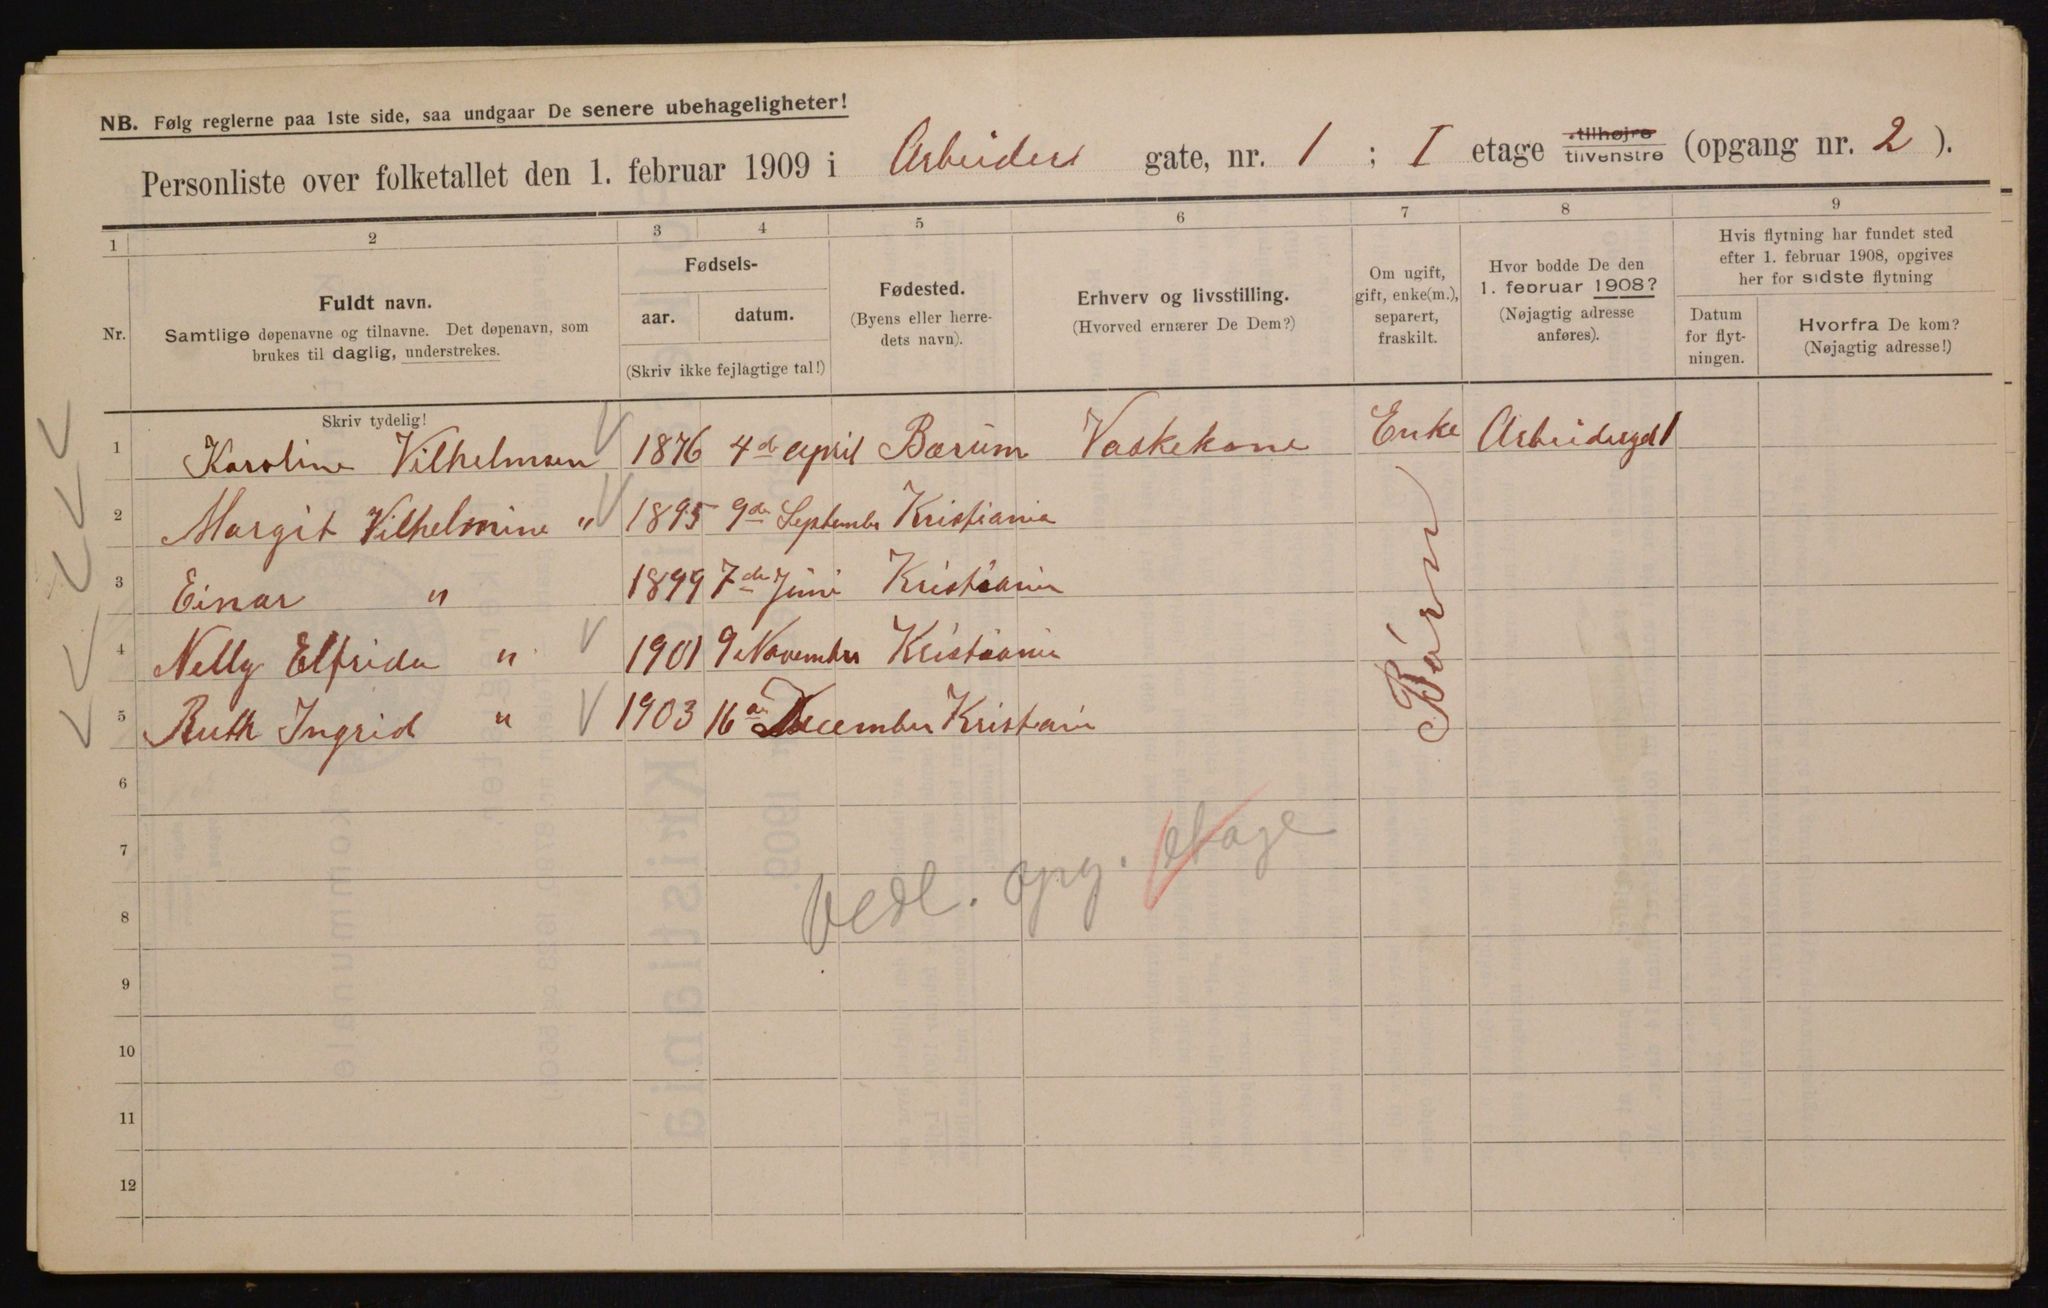 NB. Følg reglerne paa 1ste side, saa undgaar De senere ubehageligheter!
Personliste over folketallet den 1. februar 1909 i Arbeiders gate, nr. 1 ; I etage tilhøjre tilvenstre (opgang nr. 2 ).
1 2 3 4 5 6 7 8 9
Nr.
Fuldt navn.
Samtlige døpenavne og tilnavne. Det døpenavn, som
brukes til daglig, understrekes.
Fødsels-
aar. datum.
(Skriv ikke fejlagtige tal!)
Fødested.
(Byens eller herre-
dets navn).
Erhverv og livsstilling.
(Hvorved ernærer De Dem?)
Om ugift,
gift, enke(m.),
separert,
fraskilt.
Hvor bodde De den
1. februar 1908?
(Nøjagtig adresse
anføres).
Hvis flytning har fundet sted
efter 1. februar 1908, opgives
her for sidste flytning
Datum
for flyt-
ningen.
Hvorfra De kom?
(Nøjagtig adresse!)
Skriv tydelig!
1 Karoline Vilhelmsen 1876 4de April Bærum Vaskekone Enke Arbeidergd 1
2 Margit Vilhelmine " 1895 9de September Kristiania
3 Einar " 1899 7de Juni Kristiania
4 Nelly Elfrida " 1901 9 November Kristiania
5 Ruth Ingrid " 1903 16de December Kristiania
Börn
6
7
8
9
10
11
12
Vedl. opg. etage